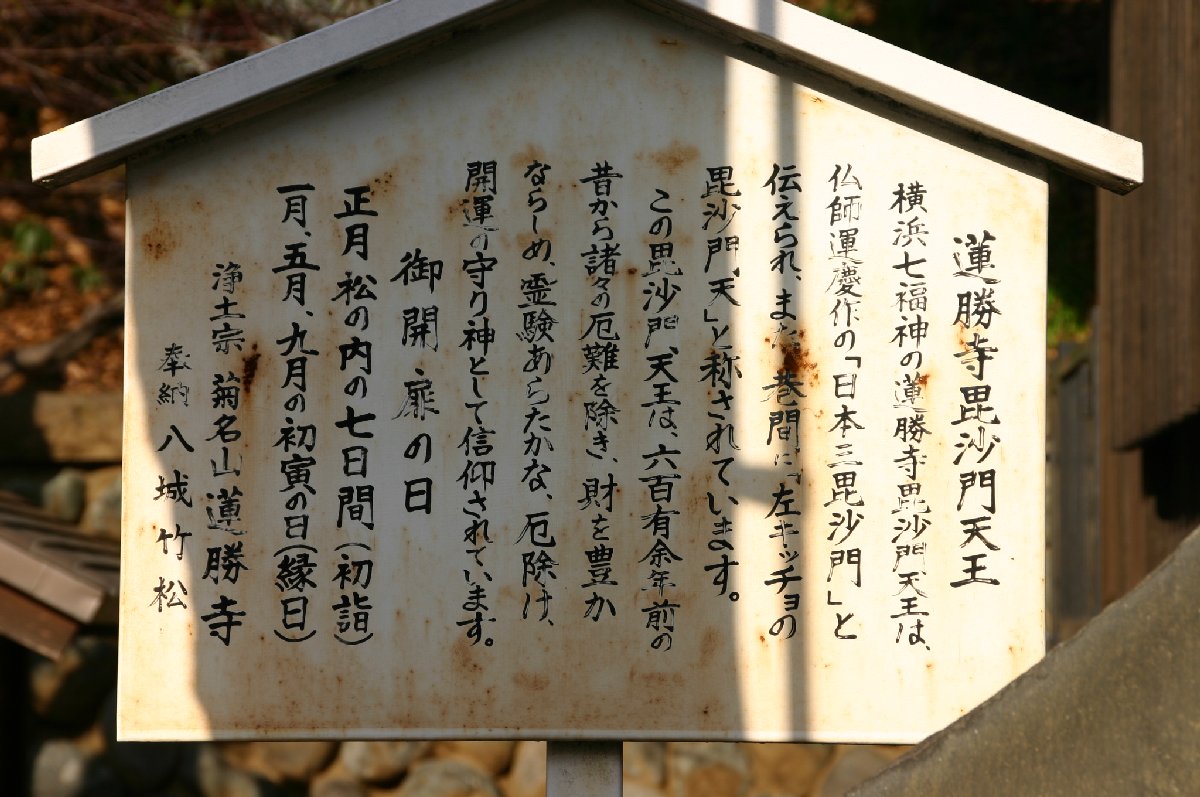 蓮勝寺毘沙門天王
横浜七福神の蓮勝寺毘沙門天王は、
仏師運慶作の「日本三毘沙門」と
伝えられ、また巷間に「左キッチョの
毘沙門天」と称されています。
この毘沙門天王は、六百有余年前の
昔から諸々の厄難を除き、財を豊か
ならしめ、霊験あらたかな、厄除け、
開運の守り神として信仰されています。
御開扉の日
正月松の内の七日間(初詣)
一月、五月、九月の初寅の日(縁日)
浄土宗 菊名山蓮勝寺
奉納 八城竹松